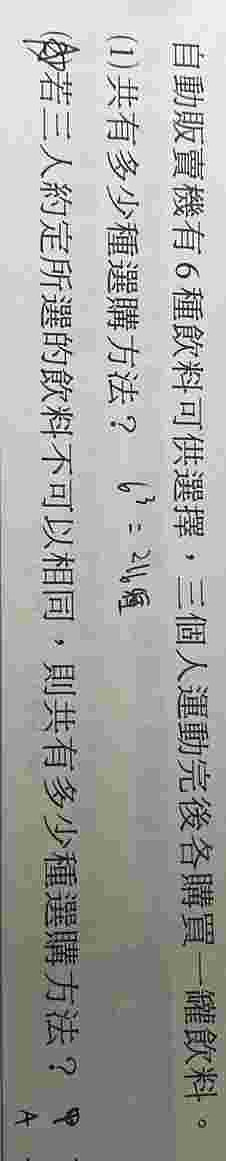 自動販賣機有6種飲料可供選擇，三個人運動完後各購買一罐飲料。
(1)共有多少種選購方法？ 6³=216種
若三人約定所選的飲料不可以相同，則共有多少種選購方法？
A